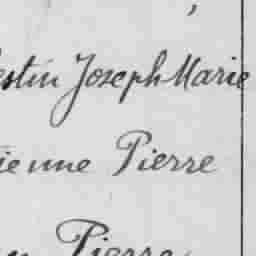 estin Joseph Marie
ienne Pierre
n Pierre